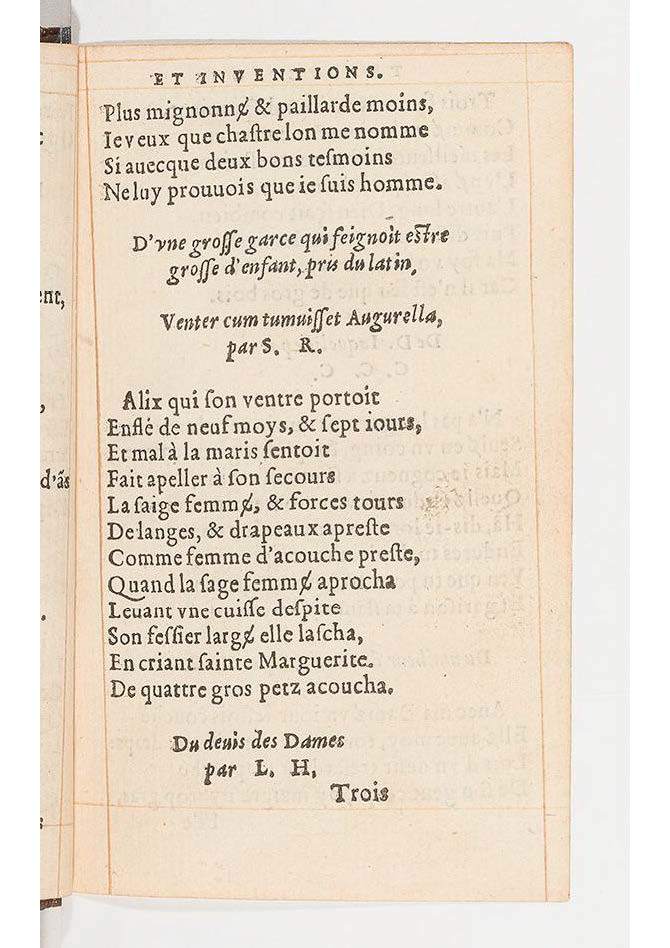 ET INVENTIONS.
Plus mignonnɇ & paillarde moins,
Ie veux que chaſtre lon me nomme
Si auecque deux bons teſmoins
Ne luy prouuois que ie ſuis homme.
D'vne groſſe garce qui feignoit eſtre
groſſe d'enfant, pris du latin,
Venter cum tumuiſſet Augurella,
par S. R.
Alix qui ſon ventre portoit
Enflé de neuf moys, & ſept iours,
Et mal à la maris ſentoit
Fait apeller à ſon ſecours
La ſaige femmɇ, & forces tours
De langes, & drapeaux apreſte
Comme femme d'acouche preſte,
Quand la ſage femmɇ aprocha
Leuant vne cuiſſe deſpite
Son feſſier largɇ elle laſcha,
En criant ſainte Marguerite.
De quattre gros petz acoucha.
Du deuis des Dames
par L. H,
Trois
ent,
,
d'ãs
.